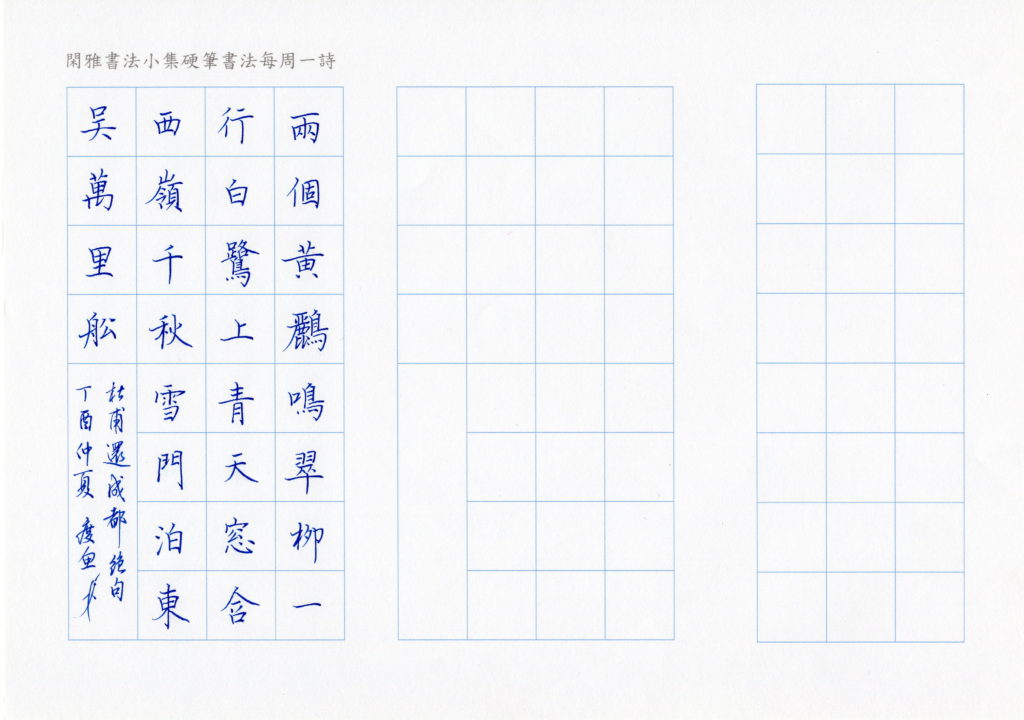 閑雅書法小集硬筆書法每周一詩
兩個黄鸝鳴翠柳一
行白鷺上青天窓含
西嶺千秋雪門泊東
吴萬里舩
杜甫還成都絶句
丁酉仲夏